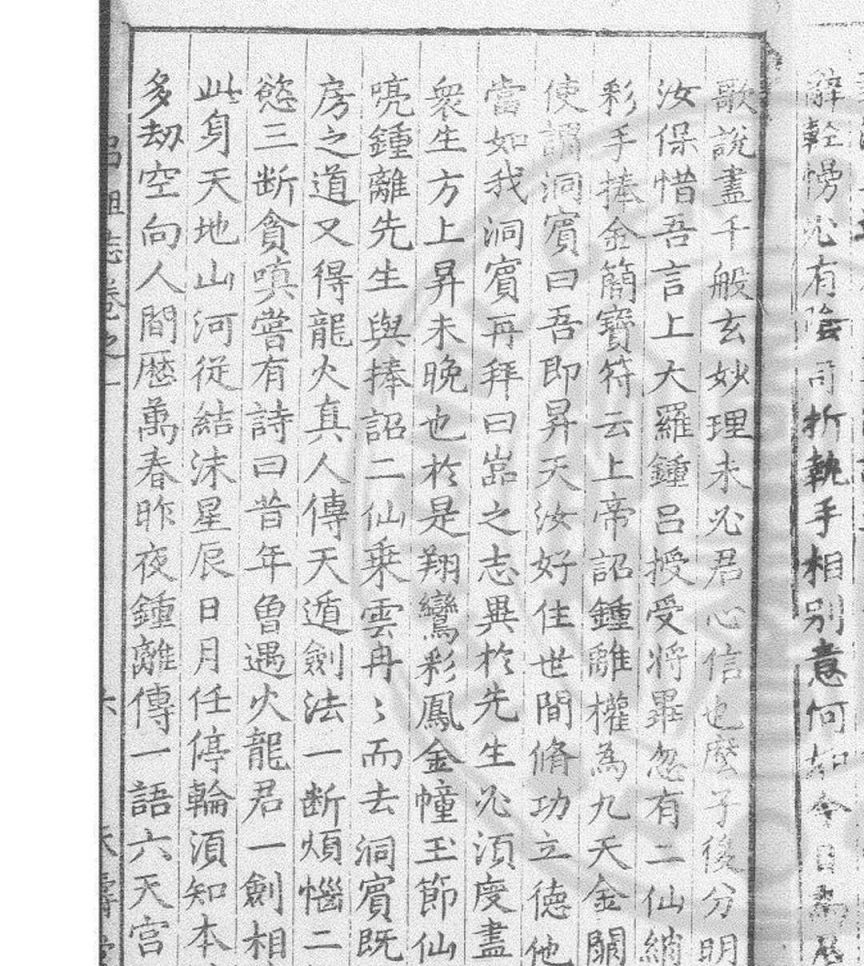 辭輕慢必有陰司折執手相別意何如今日
歌說盡千般玄妙理未必君心信也麼子後分明
汝保惜吾言上大羅鍾呂授受將畢忽有二仙綃
彩手捧金簡寶符云上帝詔鍾離權為九天金闕
使謂洞賓曰吾即昇天汝好住世間脩功立德他
當如我洞賓再拜曰嵓之志異於先生必須度盡
衆生方上昇未晚也於是翔鸞彩鳳金幢玉節仙
喨鍾離先生與捧詔二仙乗雲冉〻而去洞賓既
房之道又得龍火真人傳天遁劍法一断煩惱二
慾三断貪嗔嘗有詩曰昔年曾遇火龍君一劍相
此身天地山河従結沫星辰日月任停輪須知本
多劫空向人間歷萬春昨夜鍾離傳一語六天宮
呂祖志卷之一
六